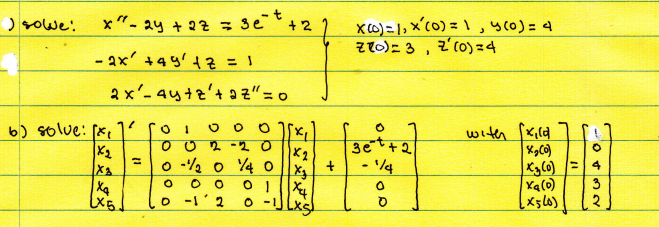 ) solve: x'' - 2y + 2z = 3e^-t + 2 } x(0)=1, x'(0)=1, y(0)=4
- 2x' + 4y' + z = 1 z(0)=3, z'(0)=4
2x' - 4y + z' + 2z'' = 0
b) solve: [x1 x2 x3 x4 x5]' = [0 1 0 0 0; 0 0 2 -2 0; 0 -1/2 0 1/4 0; 0 0 0 0 1; 0 -1 2 0 -1] [x1 x2 x3 x4 x5] + [0; 3e^-t + 2; -1/4; 0; 0] with [x1(0) x2(0) x3(0) x4(0) x5(0)] = [1 0 4 3 2]